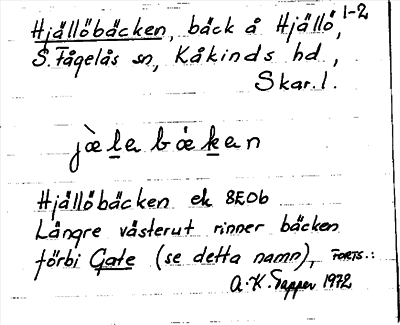 Hjällöbäcken, bäck å Hjällö, 1-2
S. Fågelås sn, Kåkinds hd,
Skar.l.
jæ̀lebækan
Hjällöbäcken ek 8E0b
Längre västerut rinner bäcken
förbi Gate (se detta namn), FORTS.:
A.K. Tapper 1972